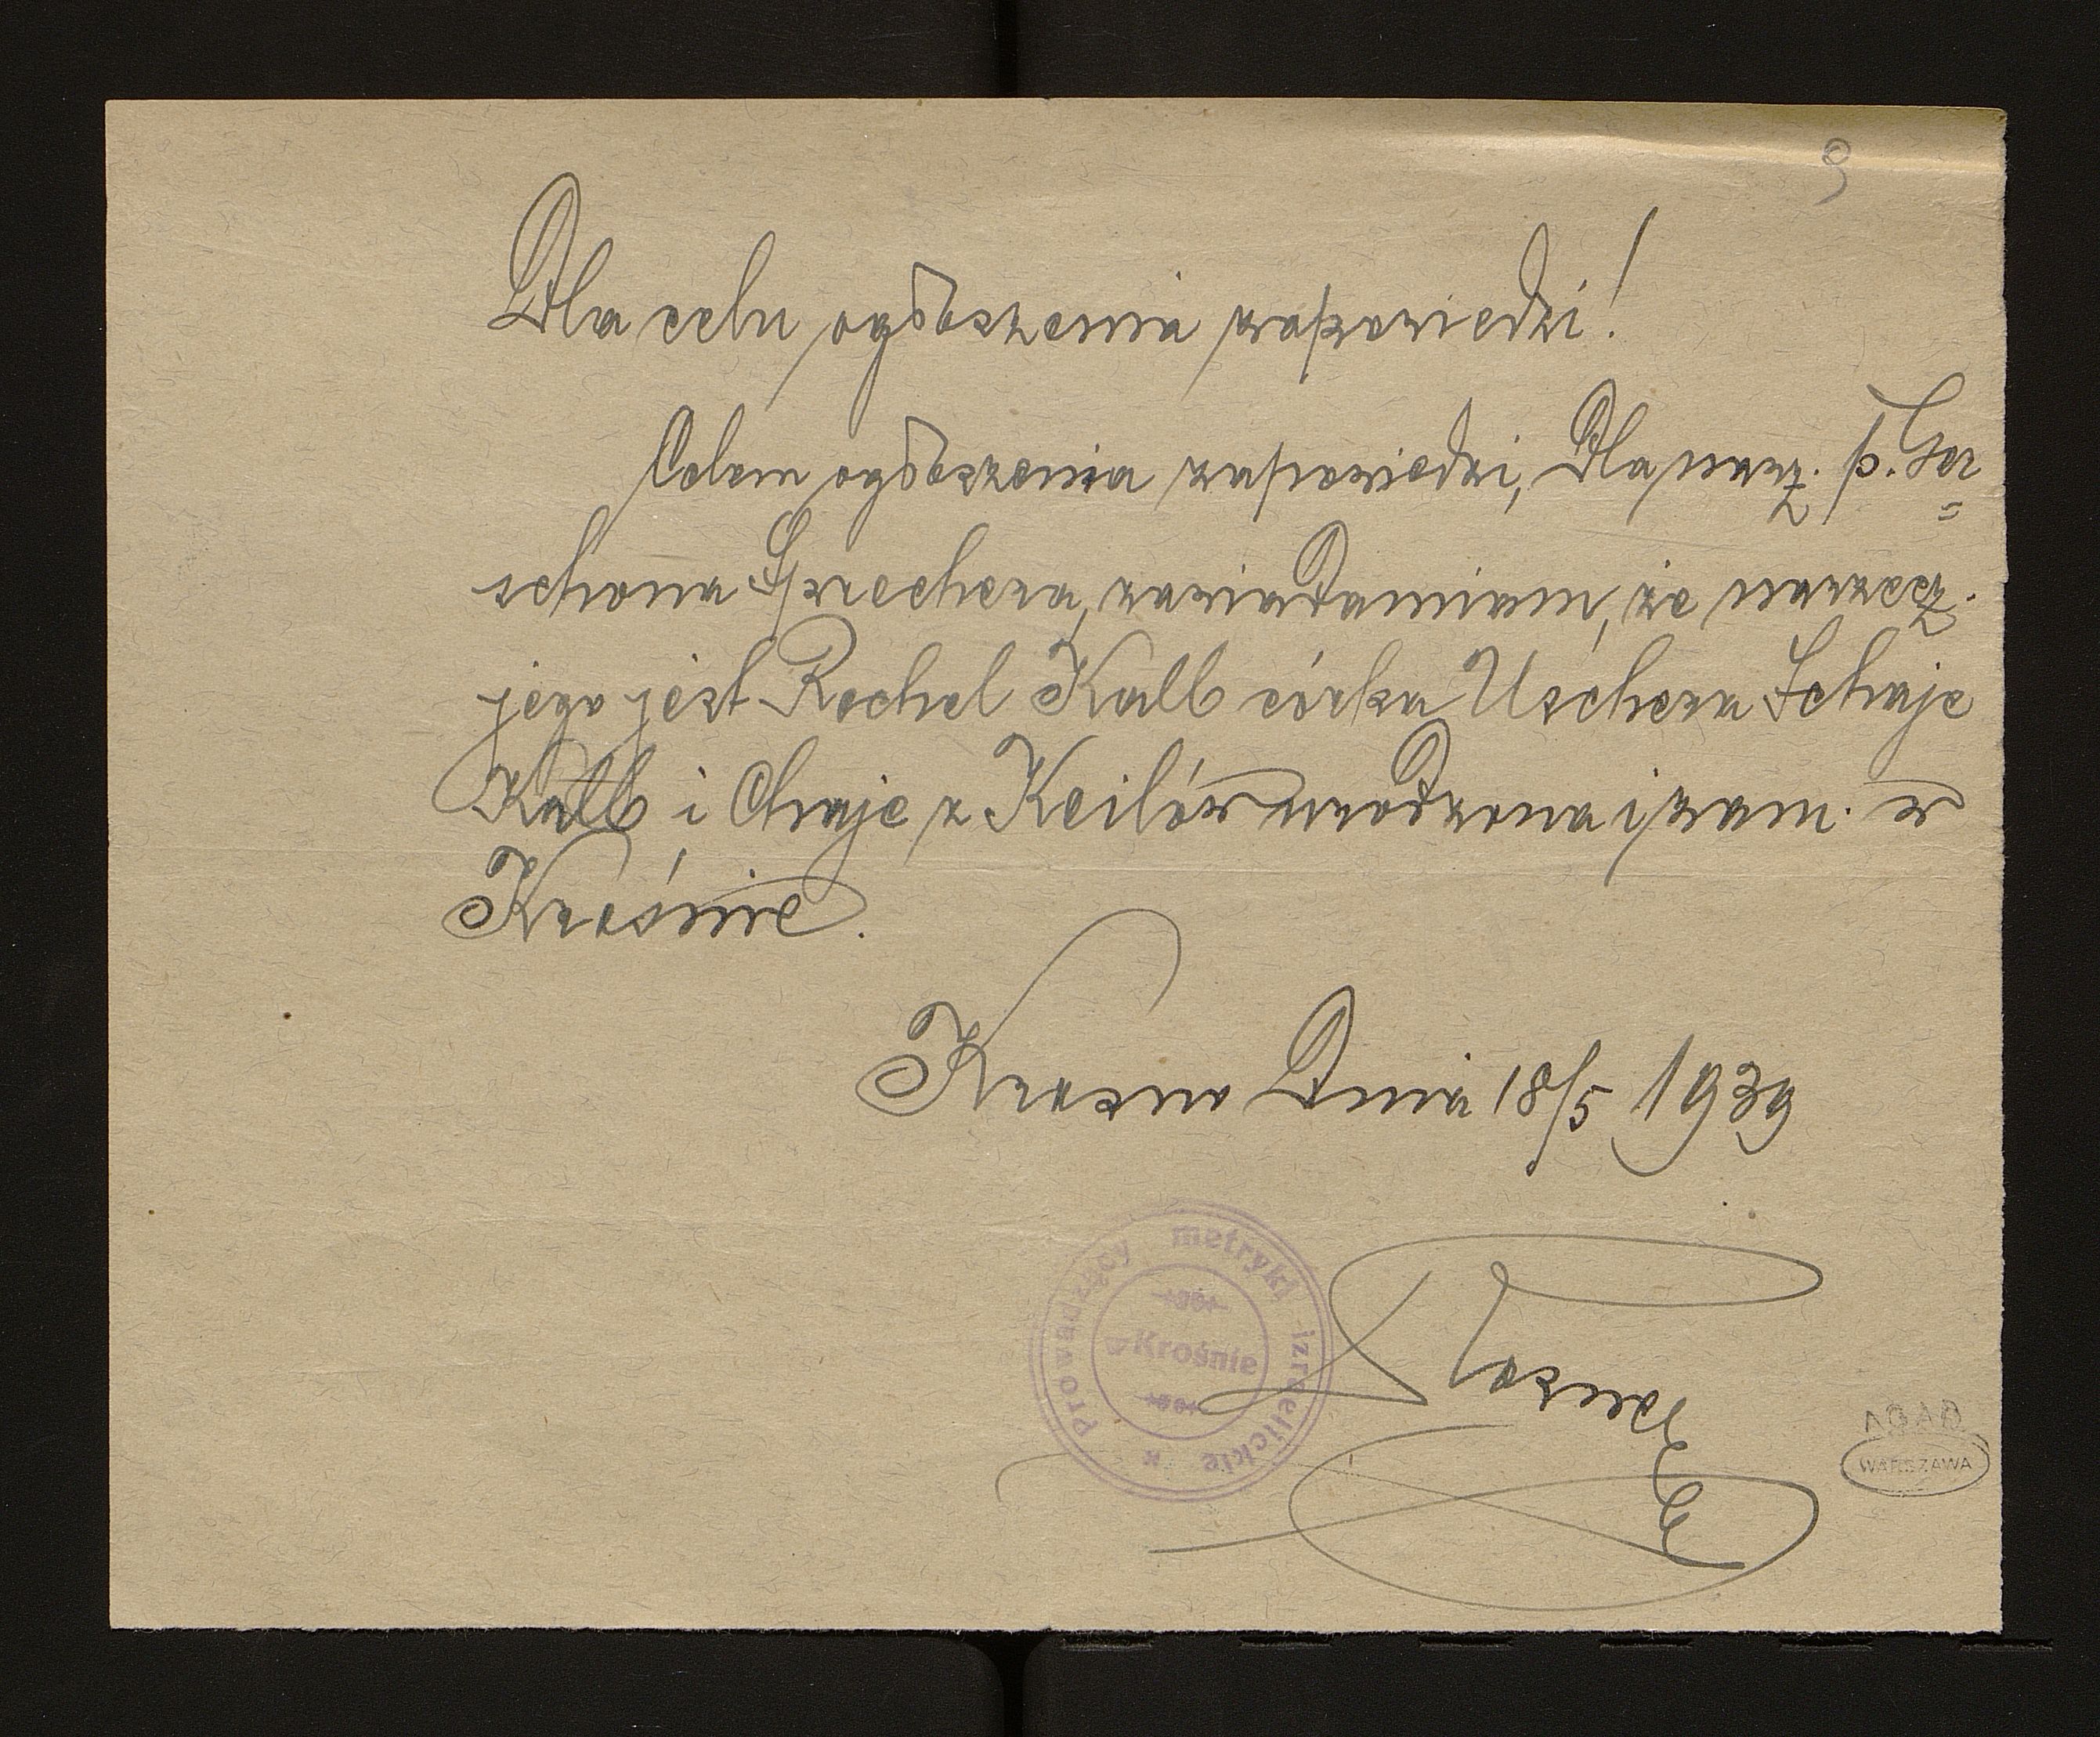 9
Dla celu ogłoszenia zapowiedzi!
Celem ogłoszenia zapowiedzi, Dla narz. p. Ger=
schona Sprechera, zawiadamiam, że narzecz.
jego jest Rechel Kalb córka Uschera Schaje
Kalb i Chaje z Keilów urodzona i zam. w
Krośnie.
Krosno Dnia 18/5 1939
Prowadzący metryki izraelickie
w Krośnie
AGAD
WARSZAWA